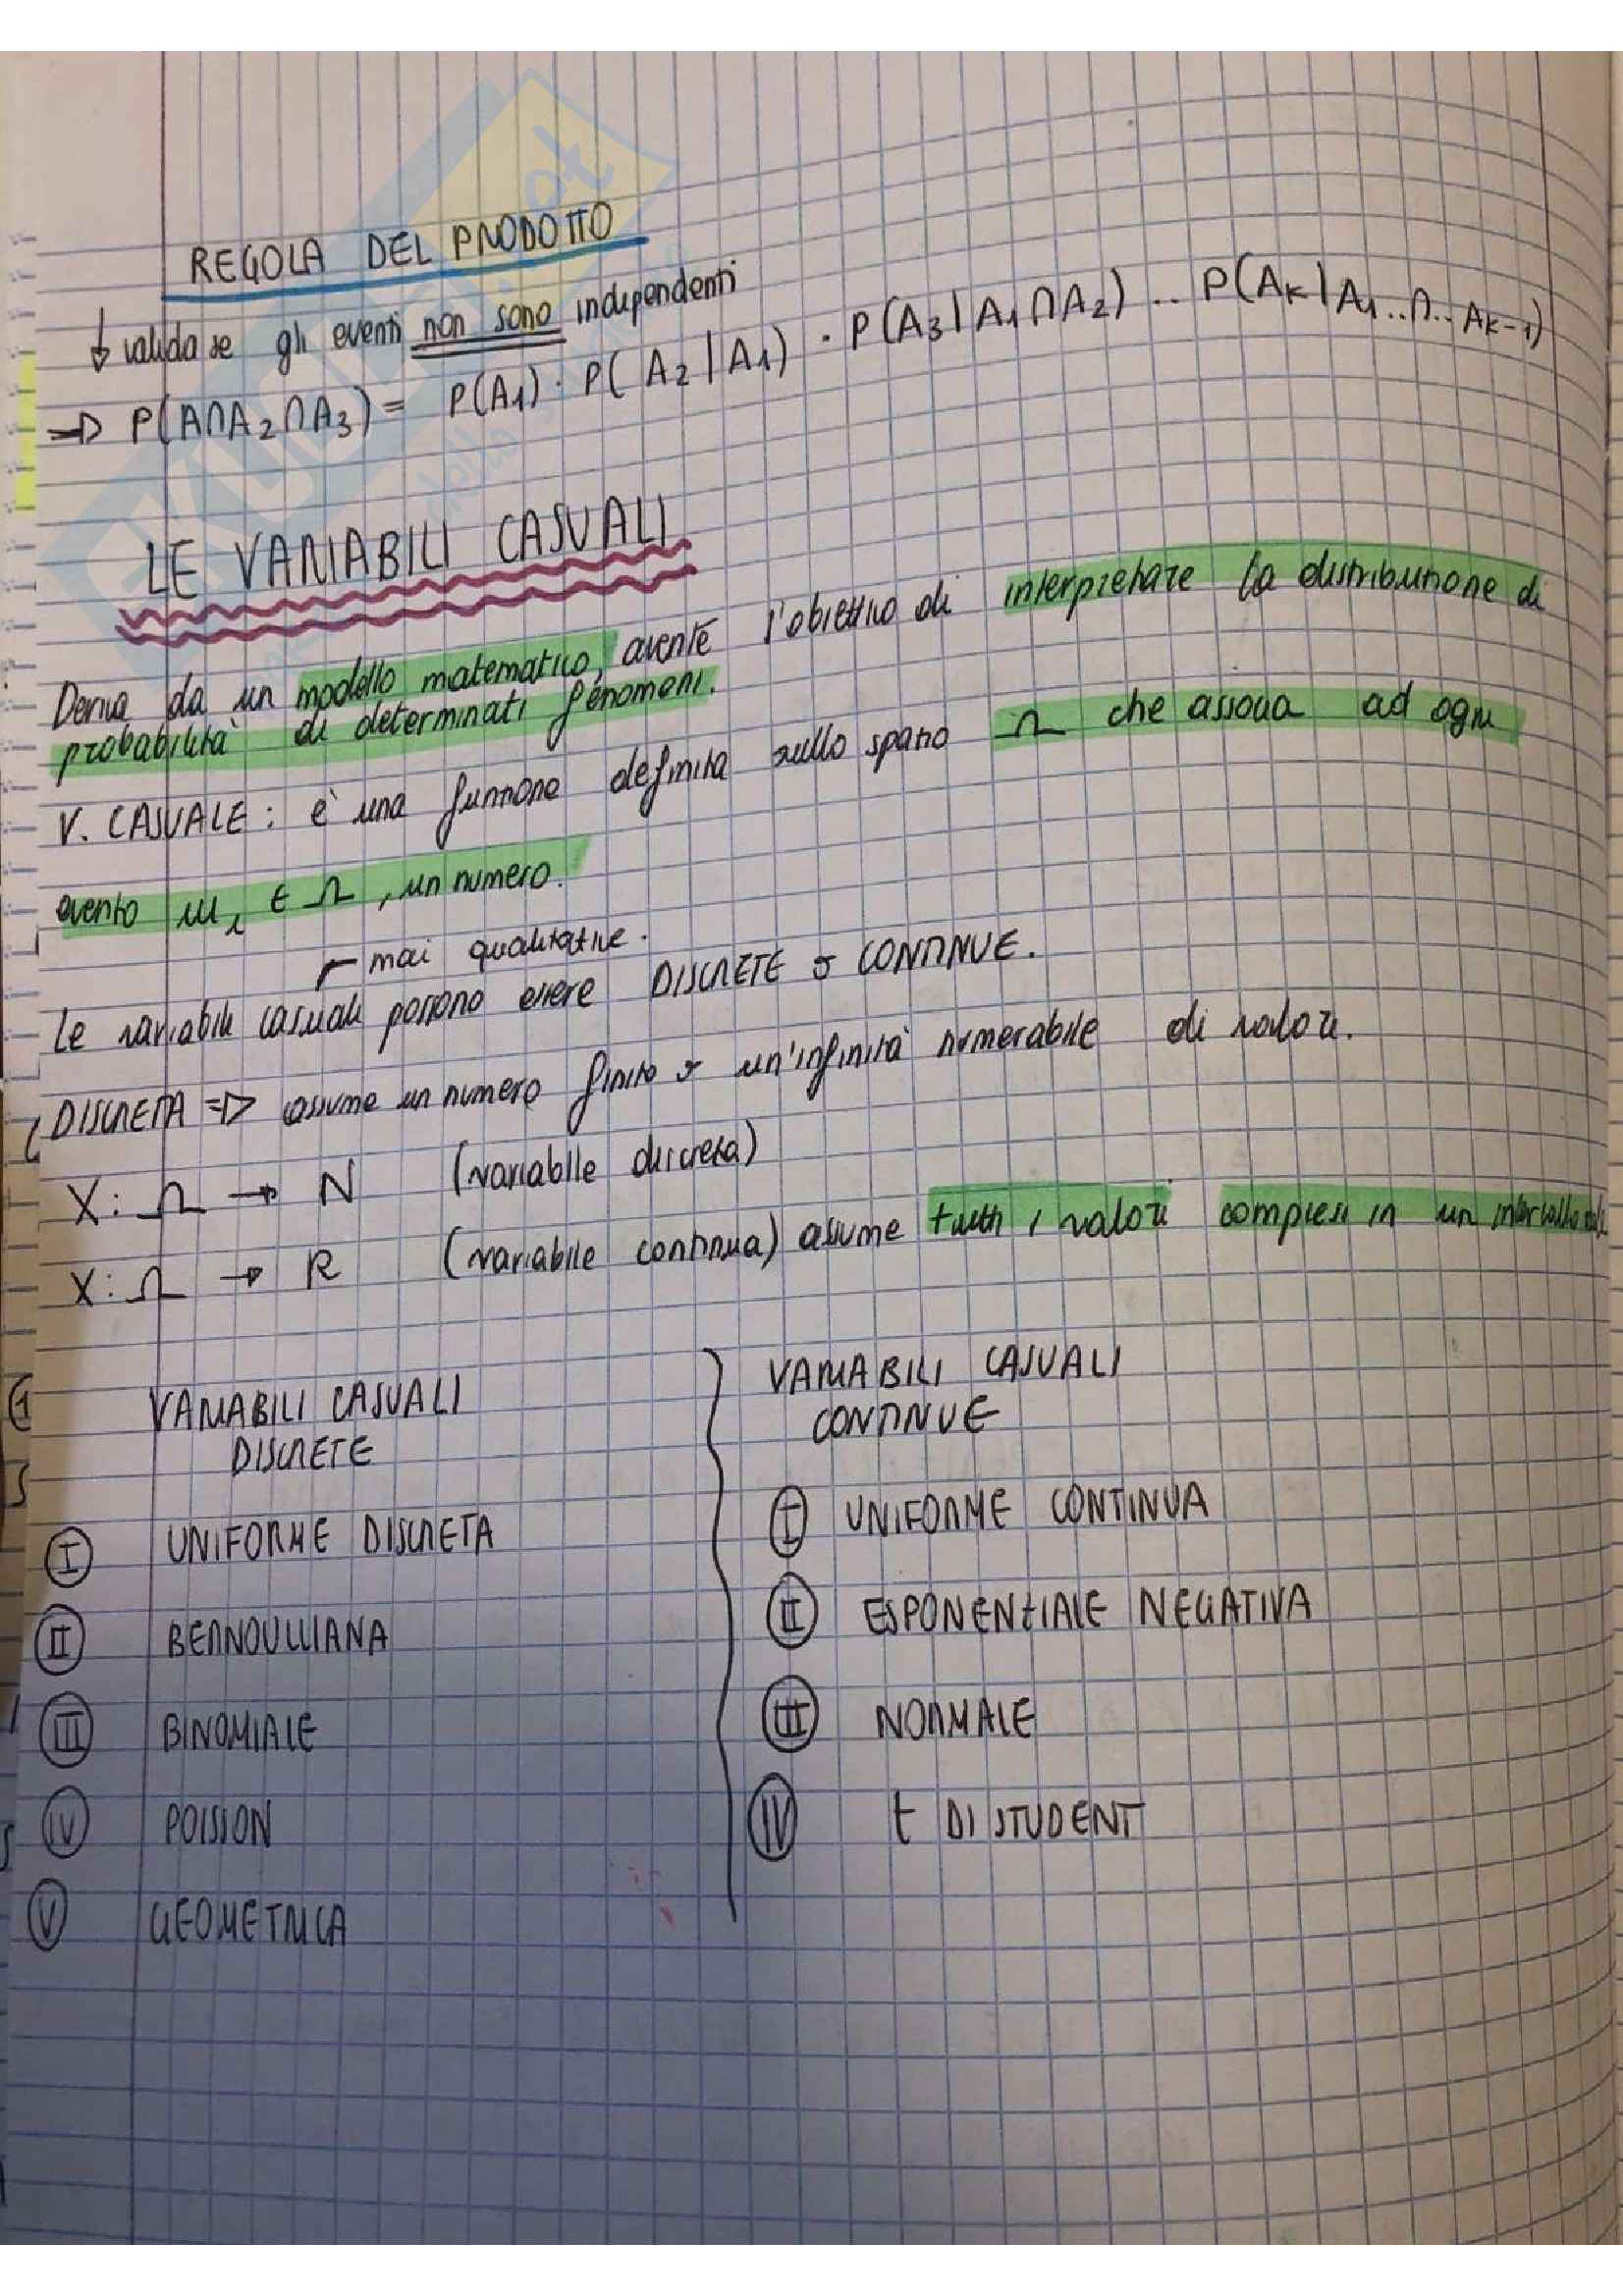 REGOLA DEL PRODOTTO
↓ valida se gli eventi non sono indipendenti
⇒ P(A∩A₂∩A₃) = P(A₁) · P(A₂|A₁) · P(A₃|A₁∩A₂) .. P(Aₖ|A₁..∩..Aₖ₋₁)
LE VARIABILI CASUALI
Deriva da un modello matematico, avente l'obiettivo di interpretare la distribuzione di
probabilità di determinati fenomeni.
V. CASUALE: è una funzione definita sullo spazio Ω che associa ad ogni
evento ωᵢ ∈ Ω, un numero.
mai qualitative.
Le variabili casuali possono essere DISCRETE o CONTINUE.
DISCRETA ⇒ assume un numero finito o un'infinità numerabile di valori.
X: Ω → N (variabile discreta)
X: Ω → R (variabile continua) assume tutti i valori compresi in un intervallo
VARIABILI CASUALI
DISCRETE
I UNIFORME DISCRETA
II BERNOULLIANA
III BINOMIALE
IV POISSON
V GEOMETRICA
VARIABILI CASUALI
CONTINUE
I UNIFORME CONTINUA
II ESPONENZIALE NEGATIVA
III NORMALE
IV t DI STUDENT